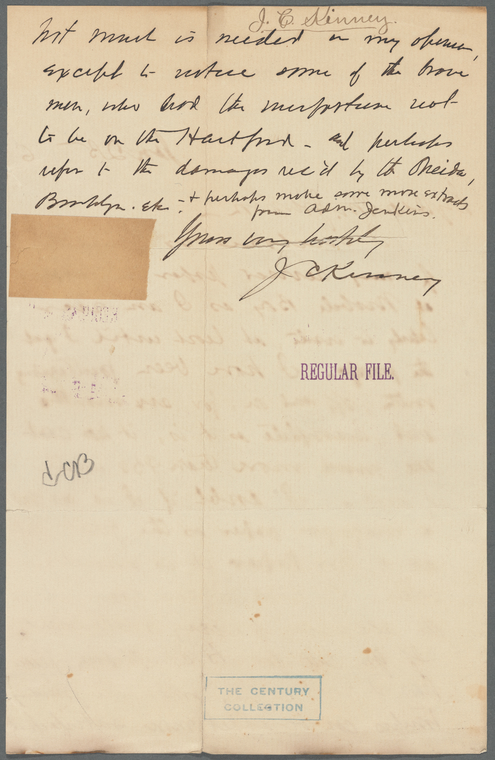 J. C. Kinney.
Not much is needed in my opinion,
except to notice some of the brave
men, who had the misfortune not
to be on the Hartford - and perhaps
refer to the damages rec'd by the Oneida,
Brooklyn. etc - & perhaps make some more extracts
from Adm. Jenkins.
Yours very hastily
J C Kinney
REGULAR FILE.
THE CENTURY
COLLECTION